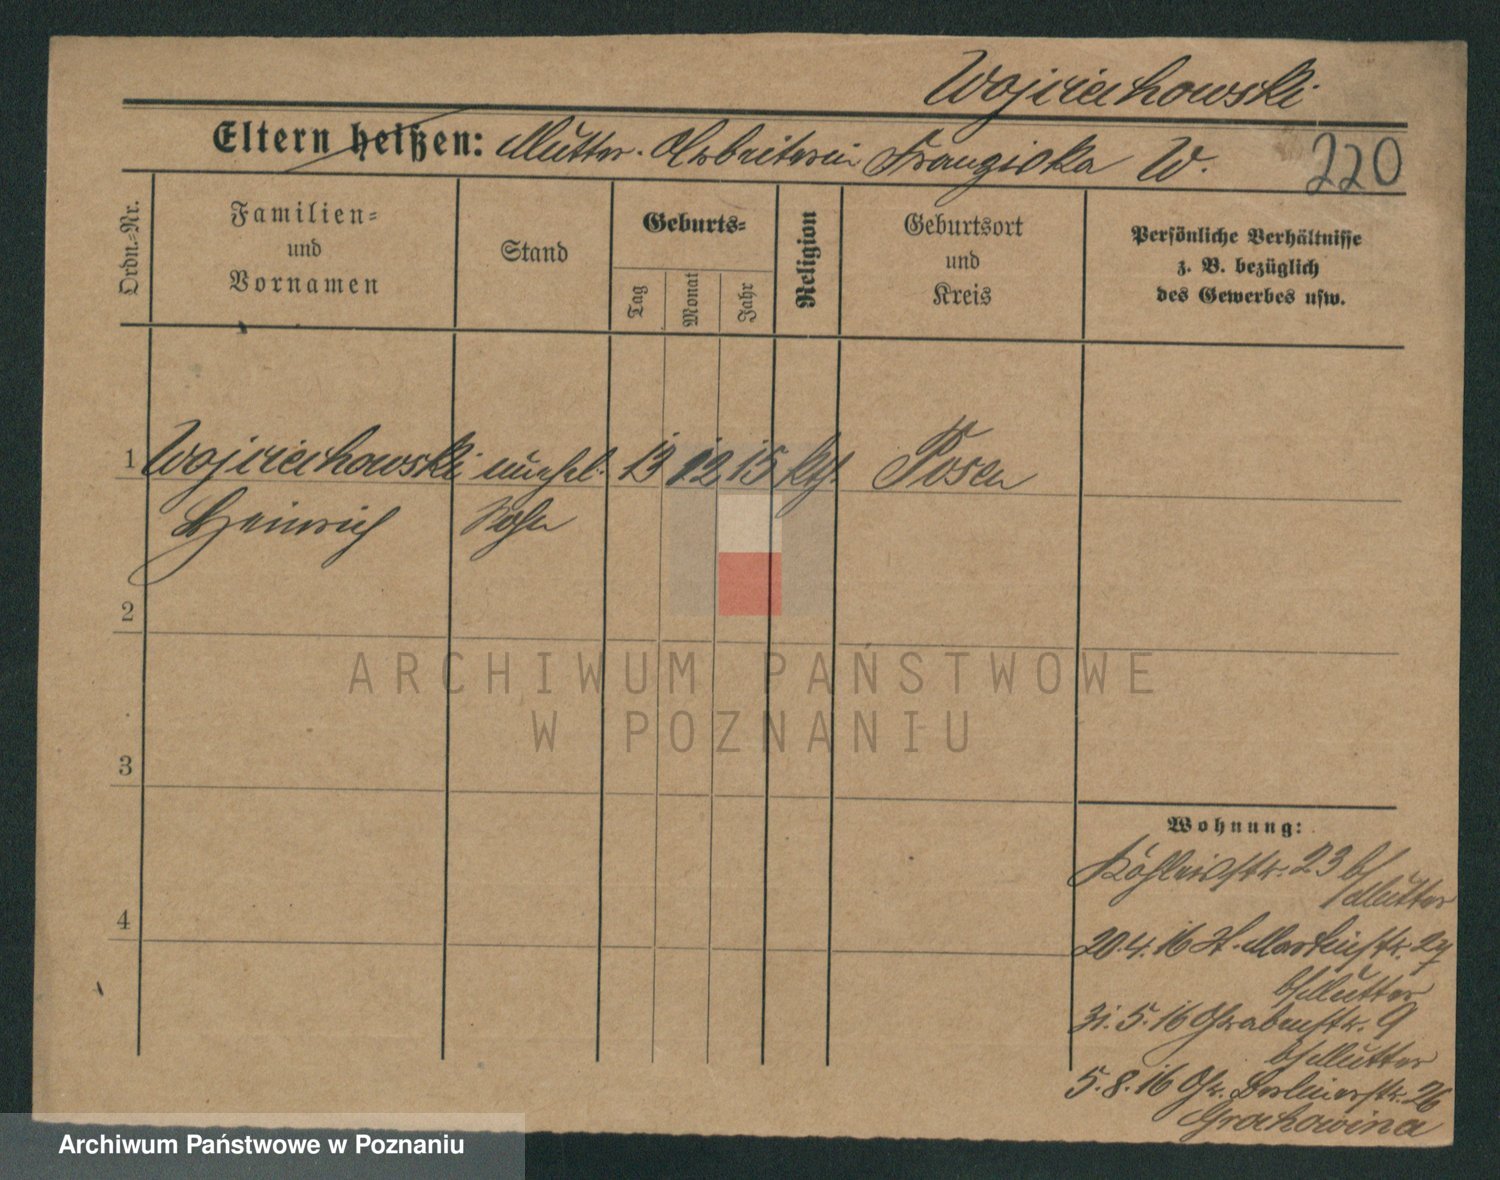 Wojciechowski
Eltern heißen: Mutter. Arbeiterin Franziska W.
220
Ordn.-Nr.
Familien-
und
Vornamen
Stand
Geburts-
Tag
Monat
Jahr
Religion
Geburtsort
und
Kreis
Persönliche Verhältnisse
z. B. bezüglich
des Gewerbes usw.
1 Wojciechowski unehel. 13 12 15 kth. Posen
Heinrich Sohn
2
3
4
Wohnung:
23 b/
Mutter
20.4.16 St. Martinstr. 27
b/Mutter
31.5.16 Grabenstr. 9
b/Mutter
5.8.16 Gr. Berlinerstr. 26
Grochowina
ARCHIWUM PAŃSTWOWE
W POZNANIU
Archiwum Państwowe w Poznaniu